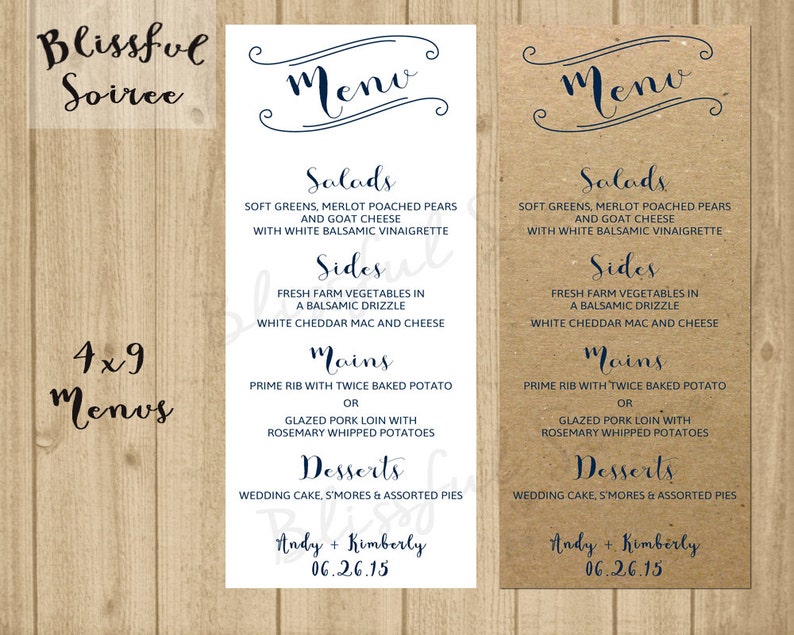 Blissful
Soiree
4x9
Menus
Menu
Salads
SOFT GREENS, MERLOT POACHED PEARS
AND GOAT CHEESE
WITH WHITE BALSAMIC VINAIGRETTE
Sides
FRESH FARM VEGETABLES IN
A BALSAMIC DRIZZLE
WHITE CHEDDAR MAC AND CHEESE
Mains
PRIME RIB WITH TWICE BAKED POTATO
OR
GLAZED PORK LOIN WITH
ROSEMARY WHIPPED POTATOES
Desserts
WEDDING CAKE, S'MORES & ASSORTED PIES
Andy + Kimberly
06.26.15
Menu
Salads
SOFT GREENS, MERLOT POACHED PEARS
AND GOAT CHEESE
WITH WHITE BALSAMIC VINAIGRETTE
Sides
FRESH FARM VEGETABLES IN
A BALSAMIC DRIZZLE
WHITE CHEDDAR MAC AND CHEESE
Mains
PRIME RIB WITH TWICE BAKED POTATO
OR
GLAZED PORK LOIN WITH
ROSEMARY WHIPPED POTATOES
Desserts
WEDDING CAKE, S'MORES & ASSORTED PIES
Andy + Kimberly
06.26.15
Blissful
Blissful